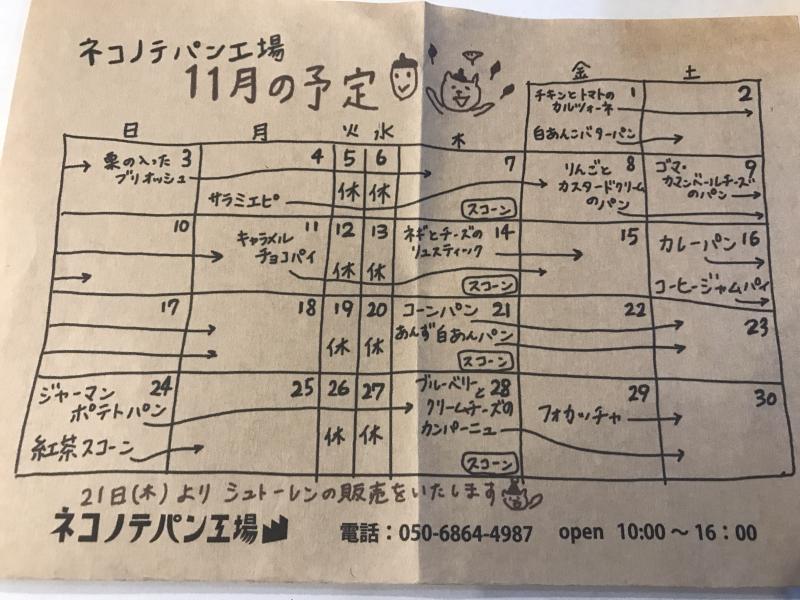 ネコノテパン工場
11月の予定
金 土
チキンとトマトの
カルツォーネ
1
白あんこバターパン
2
日 月 火 水 木
3
栗の入った
ブリオッシュ
4
サラミエピ
5
休
6
休
7
スコーン
8
りんごと
カスタードクリーム
のパン
9
ゴマ・
カマンベールチーズ
のパン
10
11
キャラメル
チョコパイ
12
休
13
休
14
ネギとチーズの
リュスティック
スコーン
15
16
カレーパン
コーヒージャムパイ
17
18
19
休
20
休
21
コーンパン
あんず白あんパン
スコーン
22
23
24
ジャーマン
ポテトパン
紅茶スコーン
25
26
休
27
休
28
ブルーベリーと
クリームチーズの
カンパーニュ
スコーン
29
フォカッチャ
30
21日(木)より シュトーレンの販売をいたします
ネコノテパン工場
電話:050-6864-4987 open 10:00〜16:00